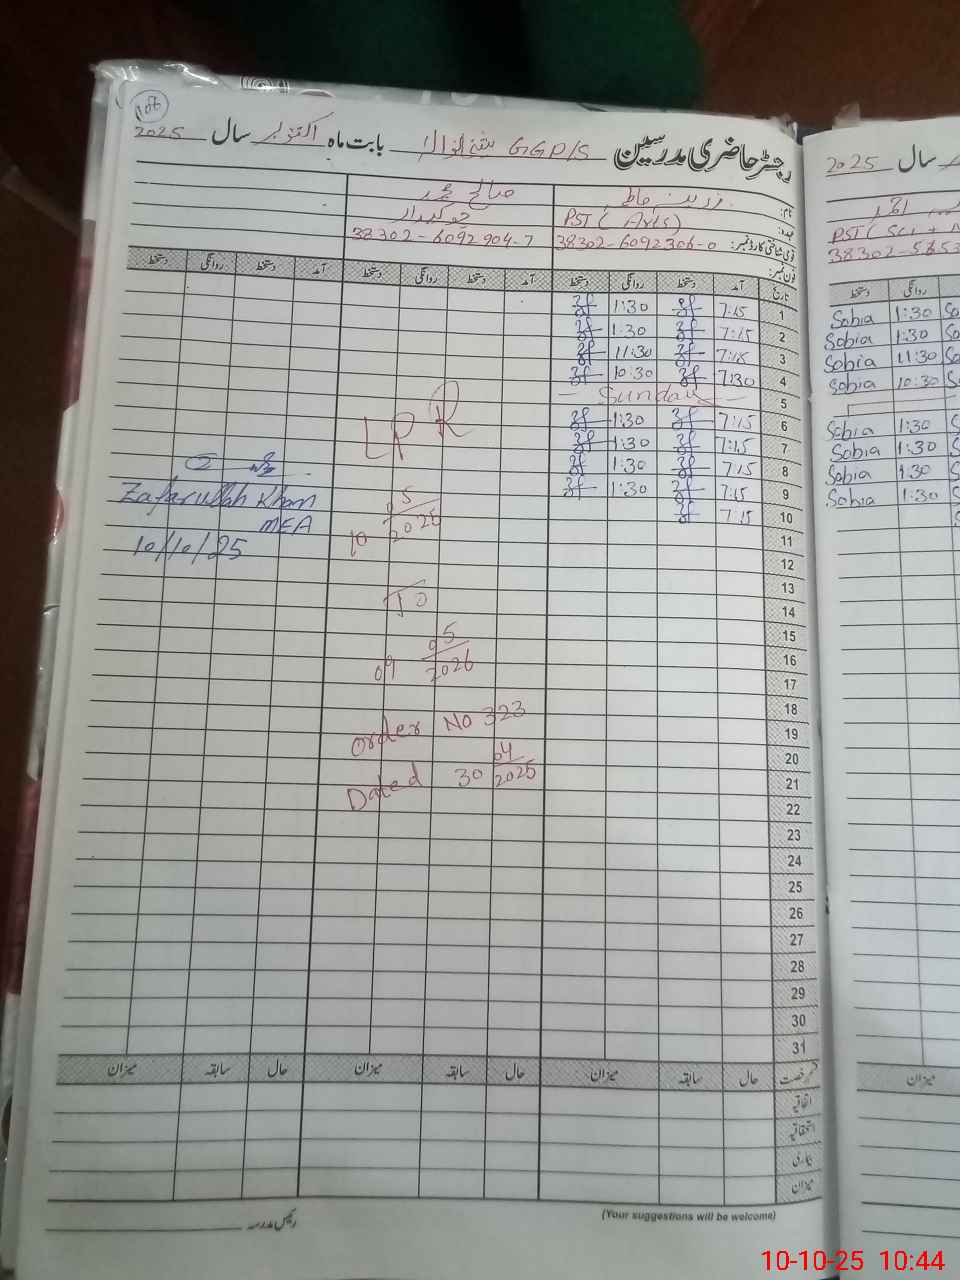 106
رجسٹر حاضری مدرسین GGP/S بابت ماہ اکتوبر سال 2025
نام:
صالح محمد
عہدہ: PST (Arts)
چوکیدار
قومی شناختی کارڈ نمبر: 38302-6092306-0
38302-6092904-7
فون نمبر:
تاریخ آمد دستخط روانگی دستخط آمد دستخط روانگی دستخط آمد دستخط روانگی دستخط
1 7:15 1:30
2 7:15 1:30
3 7:15 11:30
4 7:30 10:30
5 Sunday
6 7:15 1:30
7 7:15 1:30
8 7:15 1:30
9 7:15 1:30
10 7:15
11
12
13
14
15
16
17
18
19
20
21
22
23
24
25
26
27
28
29
30
31
LPR
10 05/2025
TO
09 05/2026
Order No 323
Dated 30 04/2025
Zafarullah Khan
MEA
10/10/25
قسم رخصت حال سابقہ میزان حال سابقہ میزان حال سابقہ میزان
اتفاقیہ
استحقاقیہ
بیماری
میزان
رئیس مدرسہ
(Your suggestions will be welcome)
سال 2025
PST (Sci +
38302-5653
روانگی دستخط
1:30 Sobia
1:30 Sobia
11:30 Sobia
10:30 Sobia
1:30 Sobia
1:30 Sobia
1:30 Sobia
1:30 Sobia
میزان
10-10-25 10:44